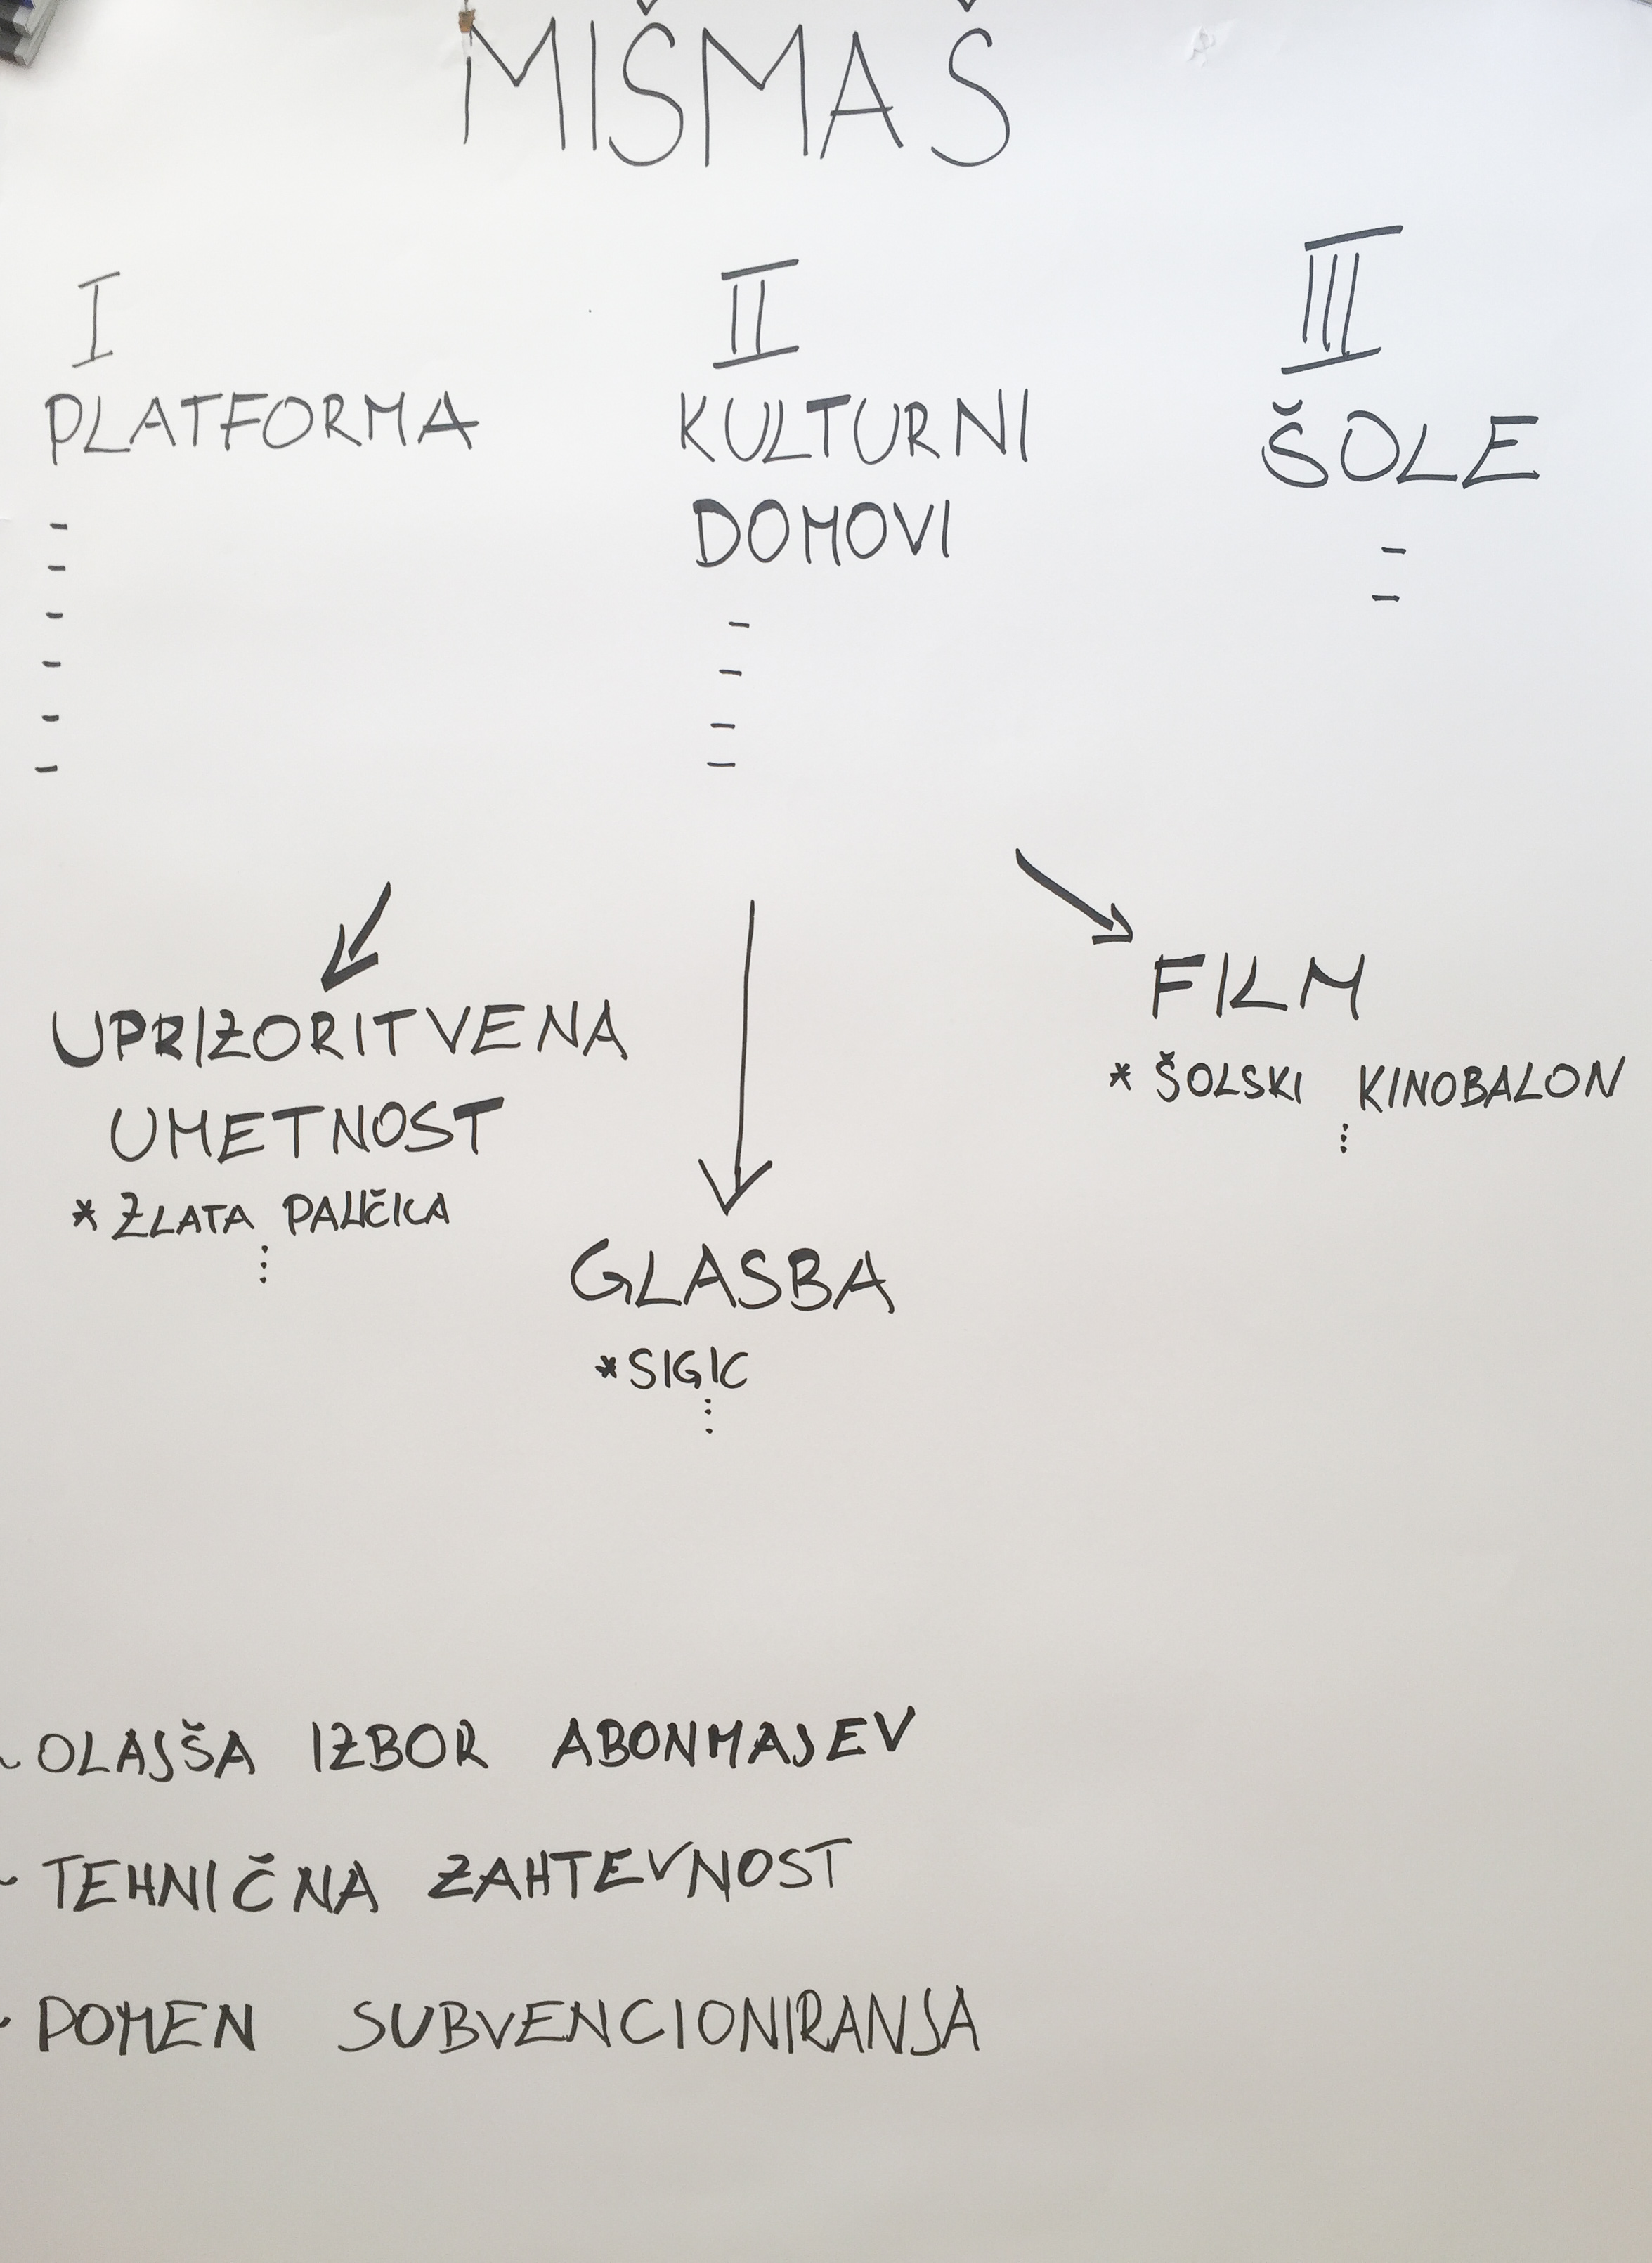 MIŠMAŠ
I
PLATFORMA
-
-
-
-
-
-
II
KULTURNI
DOMOVI
-
-
-
-
III
ŠOLE
-
-
UPRIZORITVENA
UMETNOST
* ZLATA PALIČICA
⋮
GLASBA
* SIGIC
⋮
FILM
* ŠOLSKI KINOBALON
⋮
- OLAJŠA IZBOR ABONMAJEV
- TEHNIČNA ZAHTEVNOST
- POMEN SUBVENCIONIRANJA